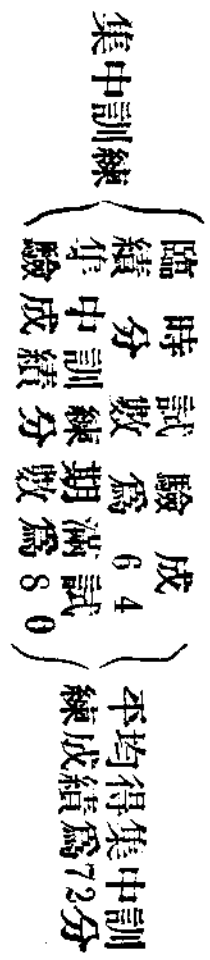 集中訓練
臨時試驗成
績分數爲64
集中訓練期滿試
驗成績分數爲80
平均得集中訓
練成績爲72分